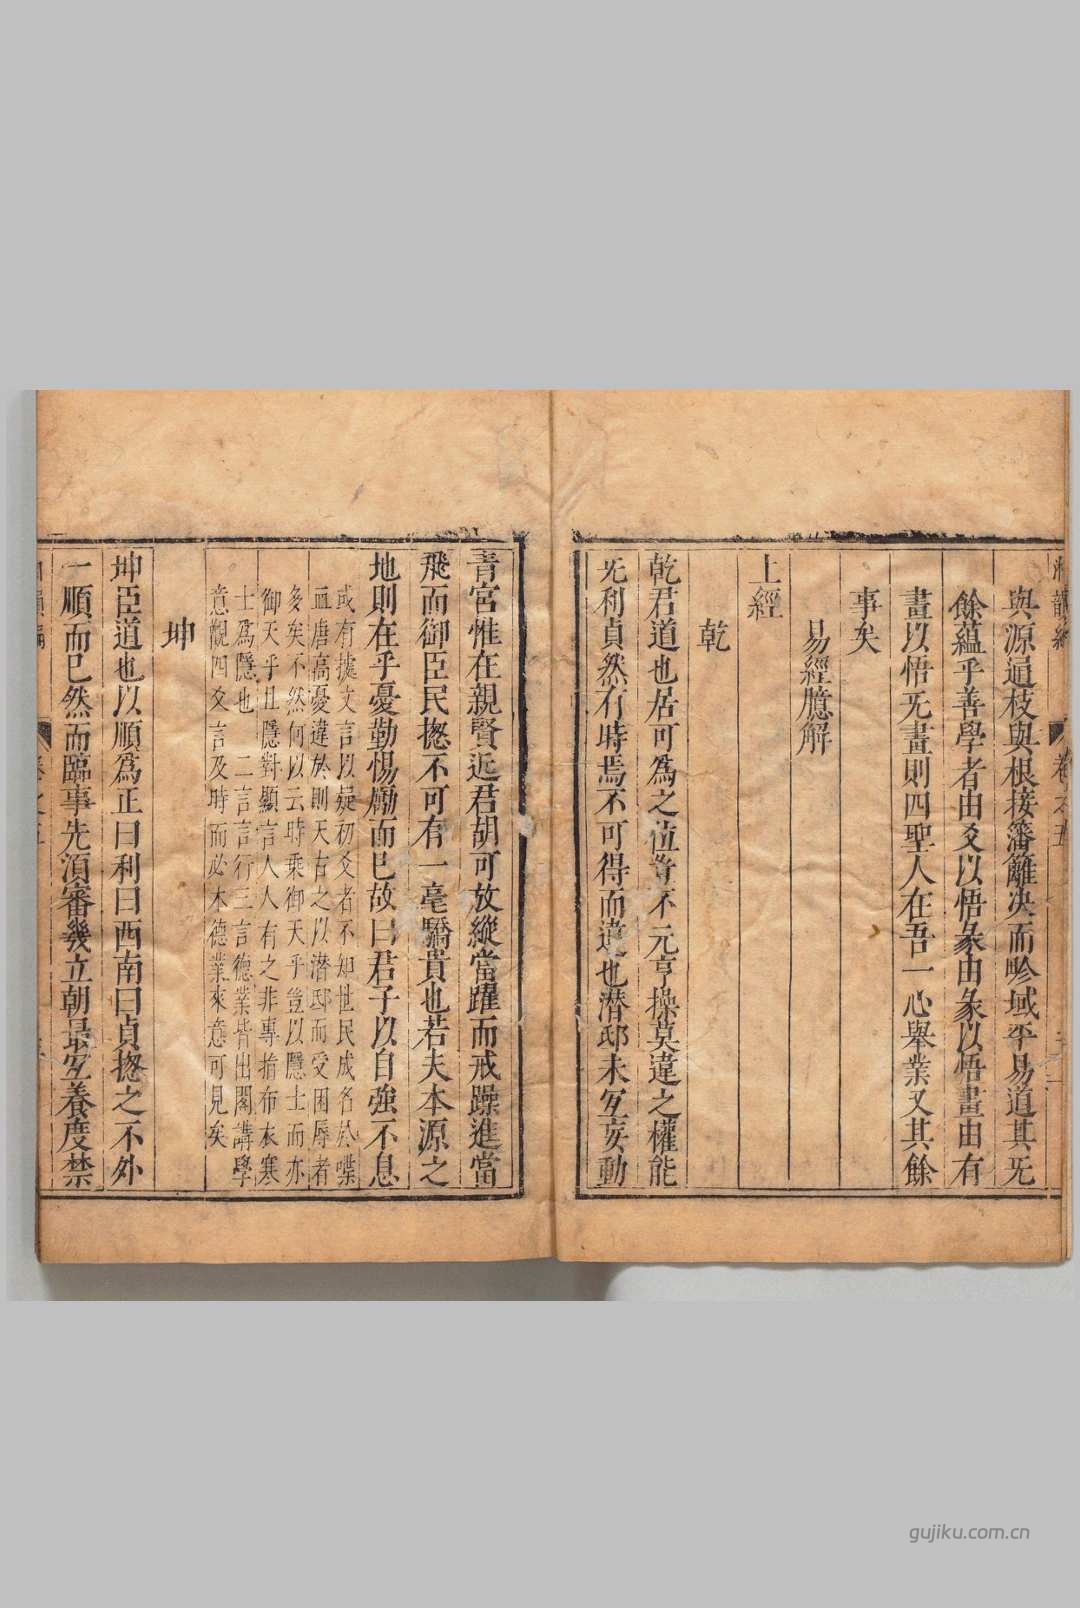 與源通枝與根接籓籬決而畛域平易道其旡
餘蘊乎善學者由爻以悟彖由彖以悟畫由有
畫以悟旡畫則四聖人在吾一心舉業又其餘
事矣
易經臆解
上經
乾
乾君道也居可為之位菅不元亨操莫違之權能
旡利貞然有時焉不可得而違也潛邸未宐妄動
青宮惟在親賢近君胡可放縱當躍而戒躁進當
飛而御臣民揔不可有一毫驕貴也若夫本源之
地則在乎憂勤惕勵而已故曰君子以自強不息
或有據文言以疑初爻者不知世民成名於喋
血唐高憂違於則天古之以潛邸而受困辱者
多矣不然何以云時乘御天乎豈以隱士而亦
御天乎且隱對顯言人人有之非專指布衣寒
士為隱也二言言行三言德業皆出閣講學
意觀四爻言及時而必本德業來意可見矣
坤
坤臣道也以順爲正曰利曰西南曰貞揔之不外
一順而已然而臨事先湏審幾立朝最宐養度禁
卷之五
gujiku.com.cn